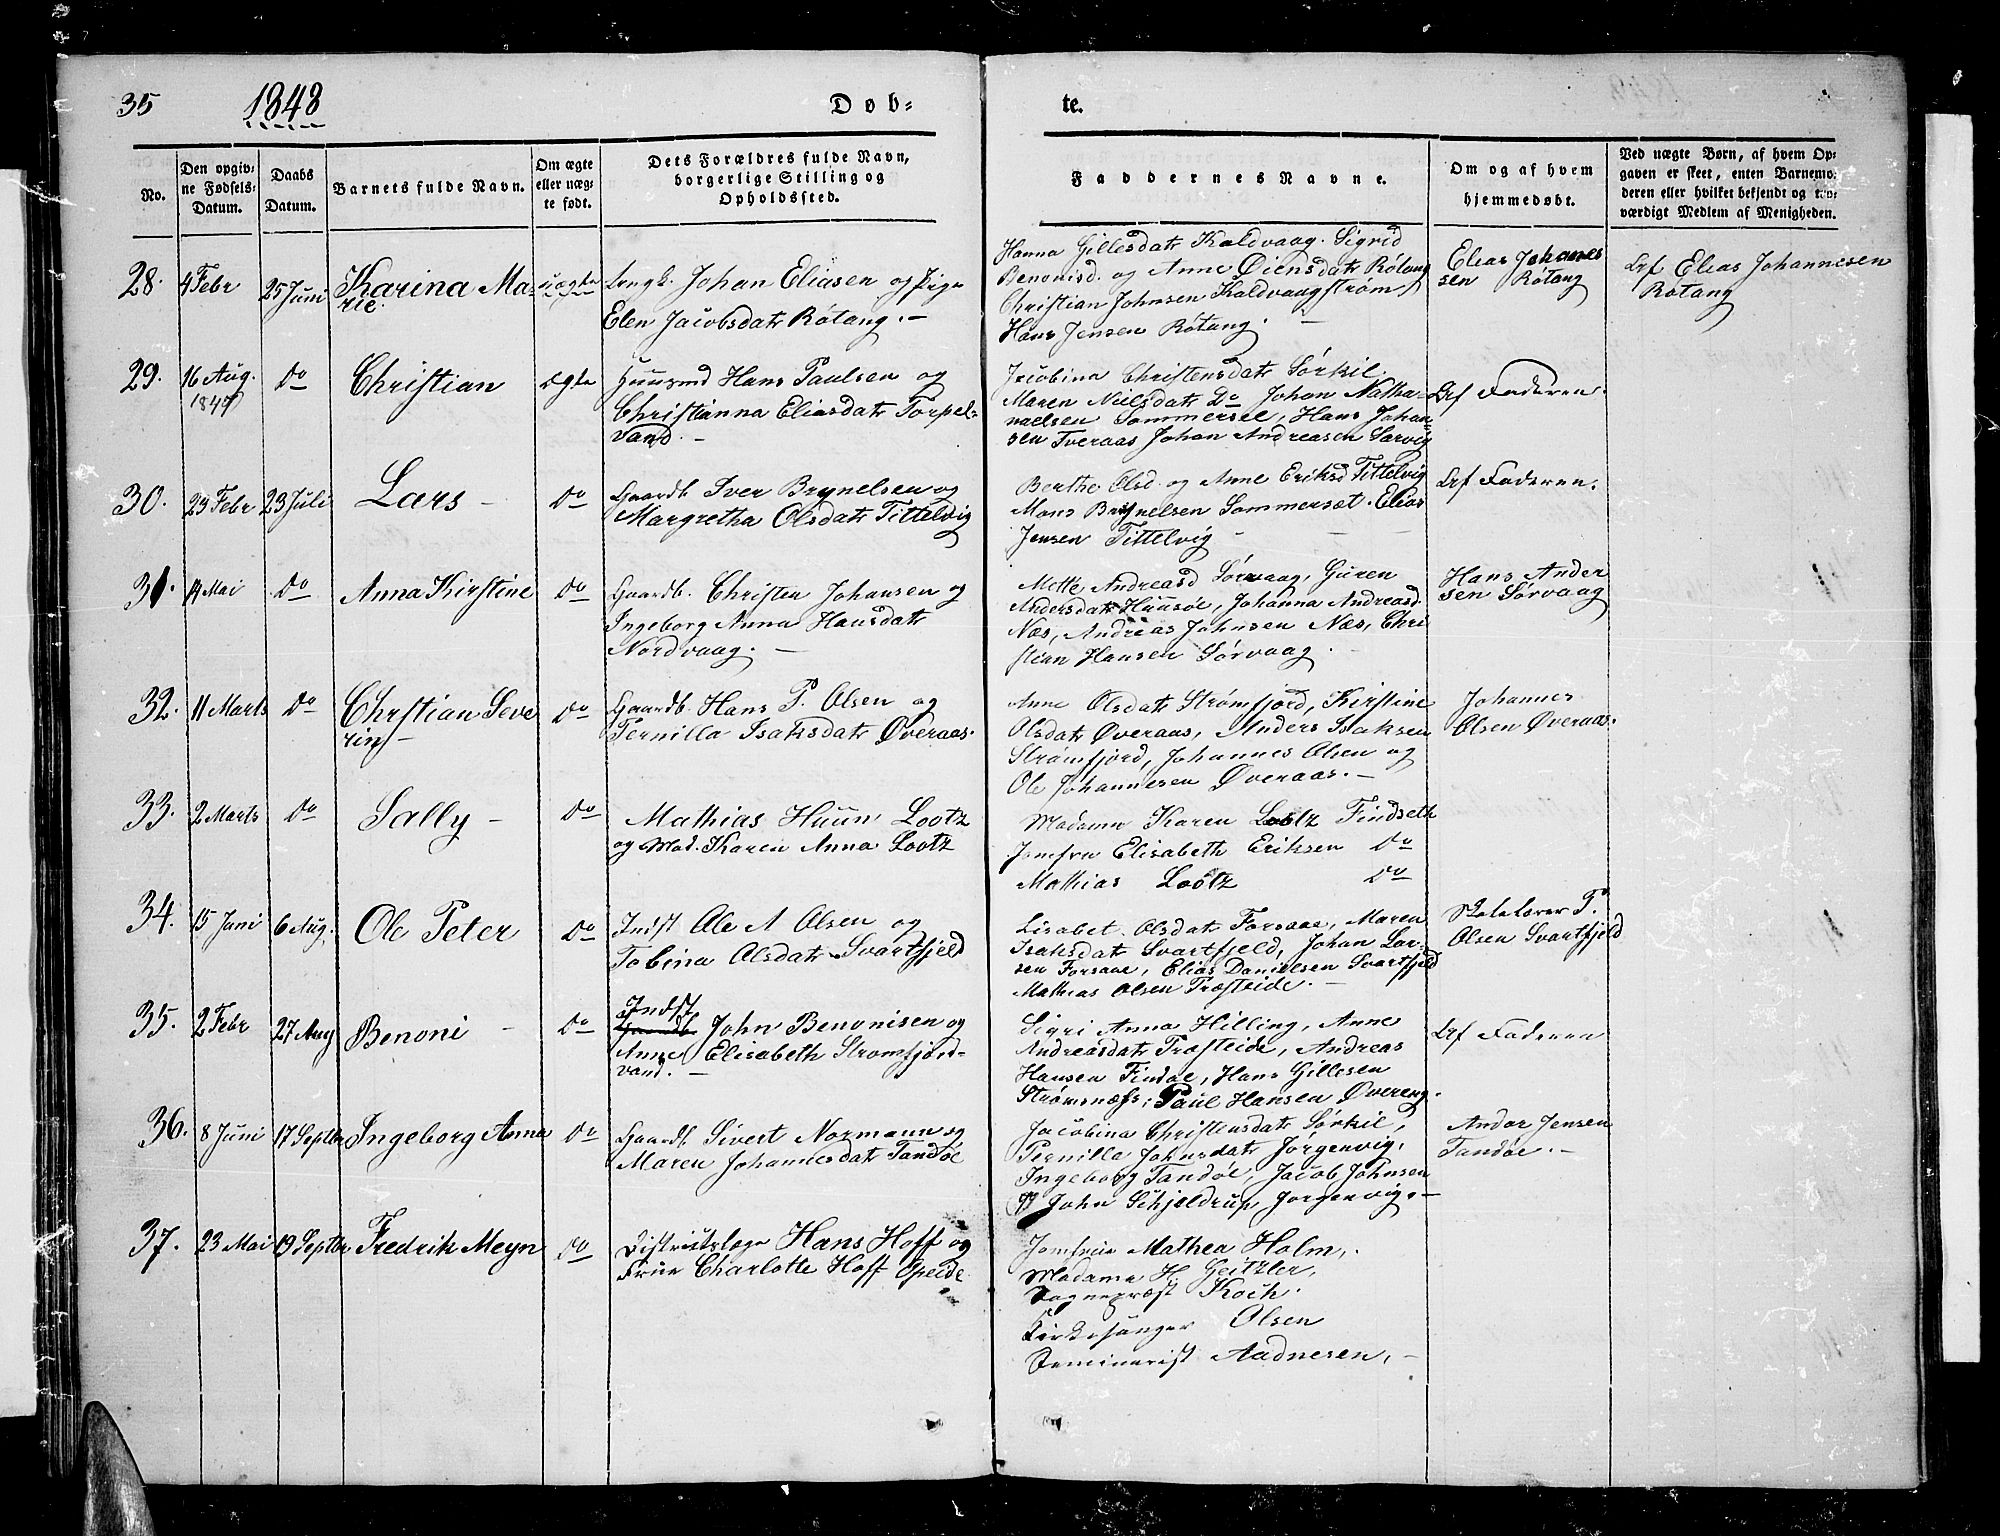 35 1848 Døb-
te.
No.
Den opgiv-
ne Fødsels-
Datum.
Daabs
Datum.
Barnets fulde Navn.
Om ægte
eller næg-
te født.
Dets Forældres fulde Navn,
borgerlige Stilling og
Opholdssted.
Faddernes Navne.
Om og af hvem
hjemmedøbt.
Ved uægte Børn, af hvem Op-
gaven er skeet, enten Barnemo-
deren eller hvilket bekjendt og tro-
værdigt Medlem af Menigheden.
28. 4 Febr 25 Juni Karina Ma-
rie.
uægte
Ungk. Johan Eliasen og Pige
Elen Jacobsdatr Røtang. –
Hanna Gillesdatr Kaldvaag. Sigrid
Benonisd. og Anne Diensdatr Røtang
Christian Johnsen Kaldvaagstrøm
Hans Jensen Røtang. –
Elias Johanes
sen Røtang
Elias Johannesen
Røtang
29. 16 Aug.
1847
do Christian ægte
Huusmd Hans Paulsen og
Christianna Eliasdatr Torpel-
vand. –
Jacobina Christensdatr Sørkil.
Maren Nielsdatr Do Johan Natha-
naelsen Sommersel, Hans Johan-
sen Tveraas Johan Andreasen Sarvig
af Faderen.
30. 23 Febr 23 Juli Lars – do
Gaardb. Iver Brynelsen og
Margretha Olsdatr Tittelvig
Berthe Olsd. og Anne Eriksd Tittelvig
Mons Brynelsen Sommerset. Elias
Jensen Tittelvig – – –
af Faderen.
31. 14 Mai do Anna Kirstine do
Gaardb. Christen Johansen og
Ingeborg Anna Hansdatr
Nordvaag. –
Mette Andreasd Sørvaag, Guren
Andersdatr Huusøe, Johanna Andreasd
Næs, Andreas Johnsen Næs, Chri
stian Hansen Sørvaag. –
Hans Ander
sen Sørvaag
32. 11 Marts do Christian Seve
rin –
do
Gaardb. Hans P. Olsen og
Pernilla Isaksdatr Øveraas.
Anne Olsdatr Strømfjord, Kirstine
Olsdatr Øveraas, Anders Isaksen
Strømfjord, Johannes Olsen og
Ole Johannesen Øveraas. –
Johannes
Olsen Øveraas.
33. 2 Marts do Sally – do
Mathias Huun Lootz
og Mad. Karen Anna Lootz
Madame Karen Lootz Findseth
Jomfru Elisabeth Eriksen do
Mathias Lootz do
34. 15 Juni 6 Aug. Ole Peter do
Indst Ole A Olsen og
Tobina Olsdatr Svartfjeld
Lisabet Olsdatr Forsaae, Maren
Isaksdatr Svartfjeld, Johan Lar-
sen Forsaae, Elias Danielsen Svartfjeld
Mathias Olsen Træsteide. –
Skolelærer P.
Olsen Svartfjeld
35. 2 Febr 27 Aug Benoni – do
Indst
Gaardb John Benonisen og
Anne Elisabeth Strømfjord-
vand. –
Sigri Anna Hilling, Anne
Andreasdatr Træsteide, Andreas
Hansen Findøe, Hans Gillesen
Strømsnæss, Paul Hansen Øvereng.
af Faderen
36. 8 Juni 17 Septbr Ingeborg Anna do
Gaardb Sivert Normann og
Maren Johannesdatr Tandøe
Jacobina Christensdatr Sørkil,
Pernilla Johnsdatr Jørgenvig,
Ingeborg Tandøe, Jacob Johnsen
og John Schjeldrup Jørgenvig. –
Andor Jensen
Tandøe. –
37. 23 Mai 19 Septbr Fredrik Meyn do
Districtslæge Hans Hoff og
Frue Charlotte Hoff Opeide
Jomfrue Mathea Holm,
Madame H. Geitzler,
Sognepræst Koch.
Kirkesanger Olsen
Seminarist Aadnesen, –